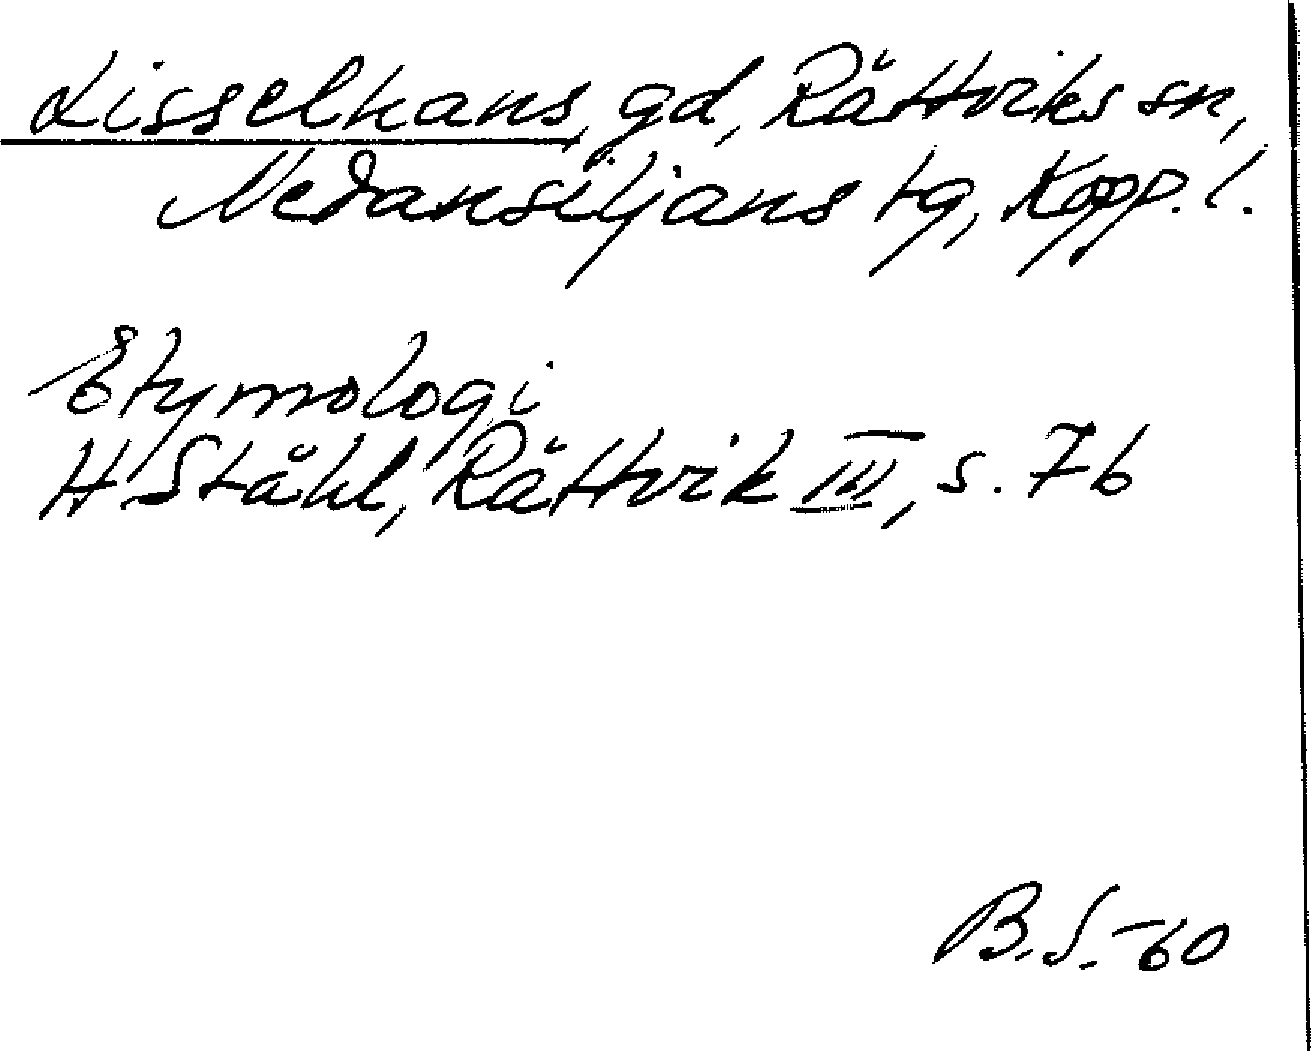 Lisselhans, gd, Rättviks sn,
Nedansiljans tg, Kopp. l.
Etymologi
H Ståhl, Rättvik III, s. 76
B.S. -60